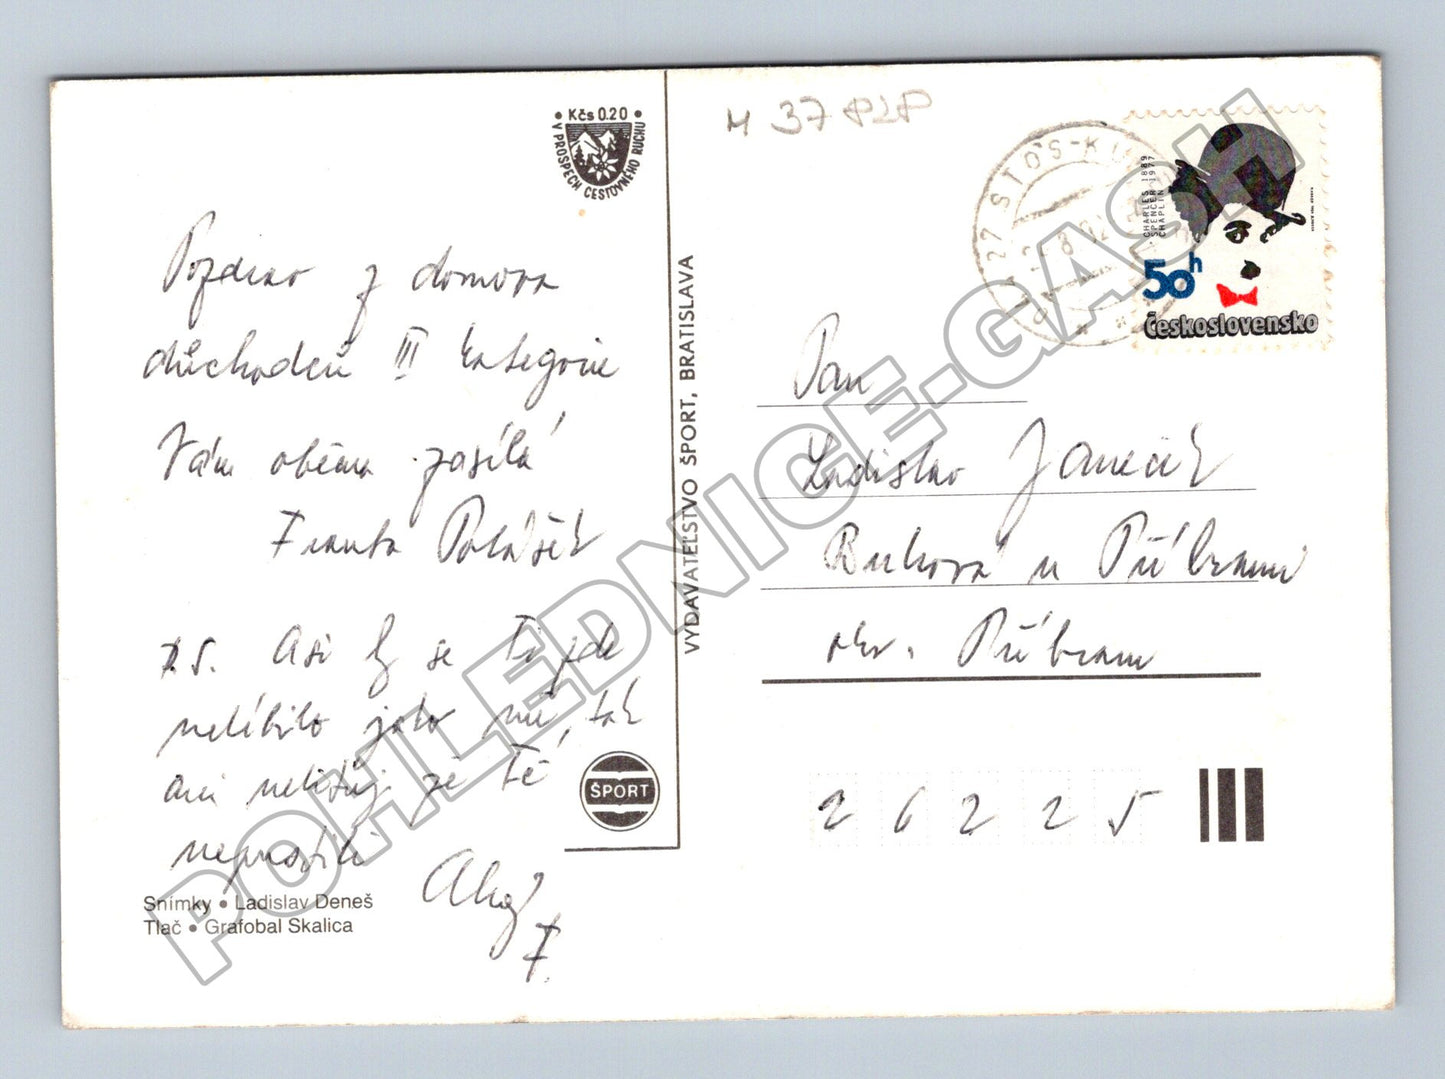 Kčs 0.20
V PROSPECH CESTOVNÉHO RUCHU
Pozdrav z domova
důchodců III kategorie
Vám oběma zasílá
Franta Polášek
P.S. Asi by se Ti zde
nelíbilo jako mě, tak
ani nelituj že Tě
nepustili
Ahoj
F.
Snímky • Ladislav Deneš
Tlač • Grafobal Skalica
ŠPORT
VYDAVATEĽSTVO ŠPORT, BRATISLAVA
M 37
27 STOS-KU
CHARLES 1889
SPENCER 1977
CHAPLIN
50h
Československo
Pan
Ladislav Janeček
Buková u Příbrami
okr. Příbram
26225
POHLEDNICE-GASH